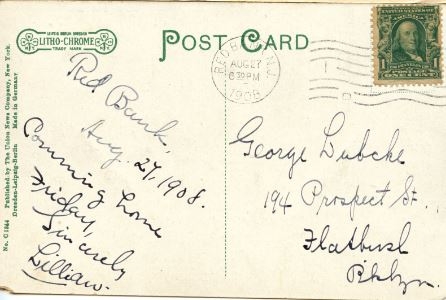 LEIPZIG BERLIN DRESDEN
LITHO-CHROME
TRADE MARK
POST CARD
RED BANK, N.J.
AUG 27
6 30 PM
1908
1
Red Bank,
Aug. 27, 1908.
Comming home
Friday,
Sincerely
Lillian.
George Lubcke
194 Prospect St.
Flatbush
Bklyn.
No. C1864 Published by The Union News Company, New York.
Dresden-Leipzig-Berlin Made in Germany